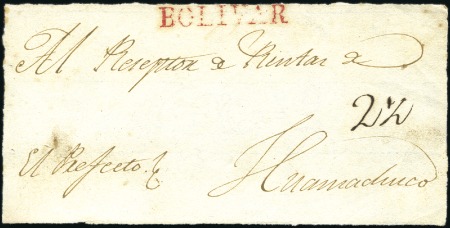 BOLIVAR
Al Receptor de Rentas de
2½
El Prefecto.
Huamachuco